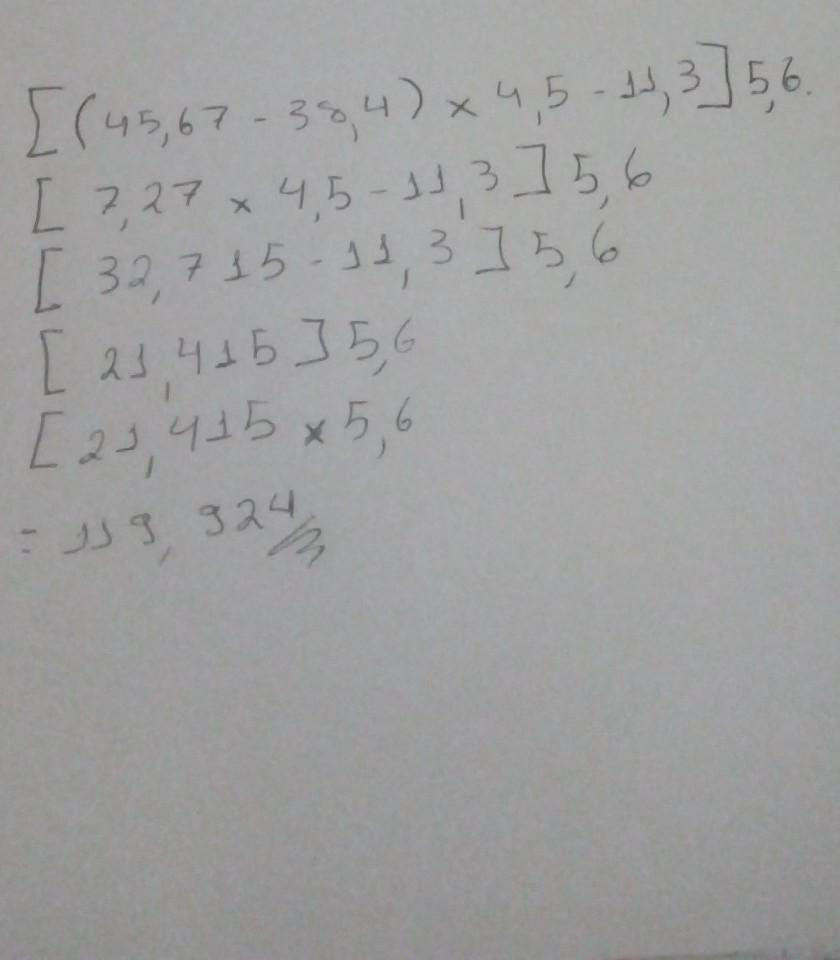 [(45,67 - 38,4) × 4,5 - 11,3] 5,6.
[ 7,27 × 4,5 - 11,3 ] 5,6
[ 32,715 - 11,3 ] 5,6
[ 21,415 ] 5,6
[ 21,415 × 5,6
= 119,924